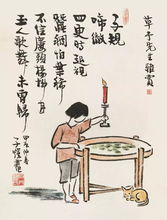 先生雅賞
子規
啼徹
四更時起視
蠶稠怕葉稀
不信樓頭楊柳月
玉人歌舞未曾歸
子愷畫